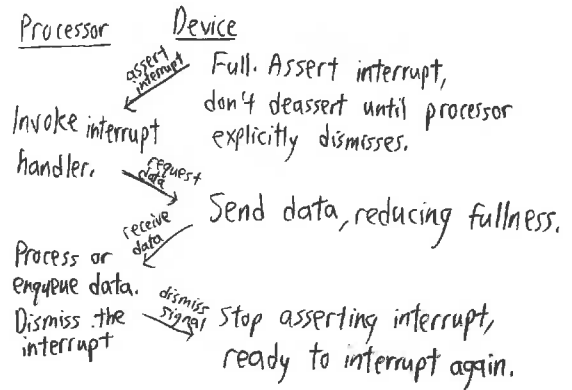 Processor Device
assert
interrupt
Full. Assert interrupt,
don't deassert until processor
explicitly dismisses.
Invoke interrupt
handler.
request
data
Send data, reducing fullness.
receive
data
Process or
enqueue data.
Dismiss the
interrupt
dismiss
signal
Stop asserting interrupt,
ready to interrupt again.